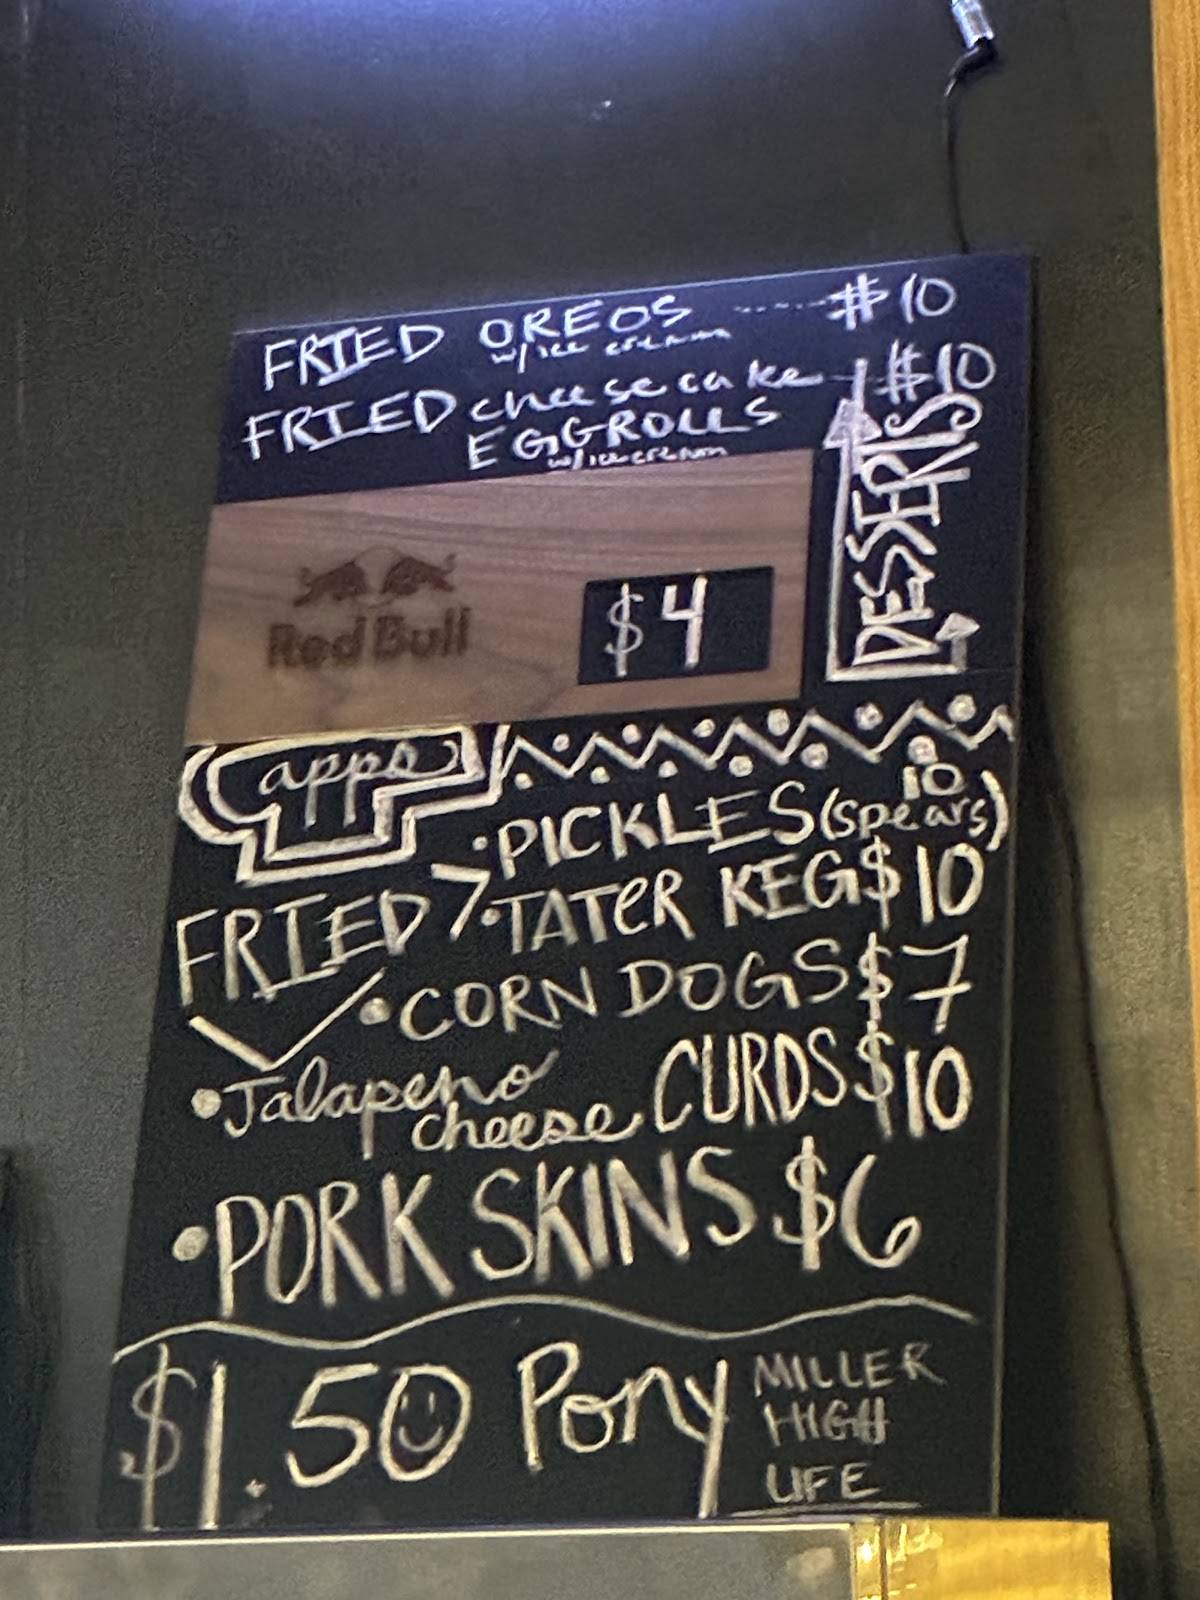 FRIED OREOS ------ $10
w/ ice cream
FRIED cheesecake - $10
EGGROLLS
w/ ice cream
DESSERTS
Red Bull
$4
apps
10
• PICKLES (spears)
FRIED > • TATER KEG $10
• CORN DOGS $7
• Jalapeno cheese CURDS $10
• PORK SKINS $6
$1.50 Pony MILLER
HIGH
LIFE